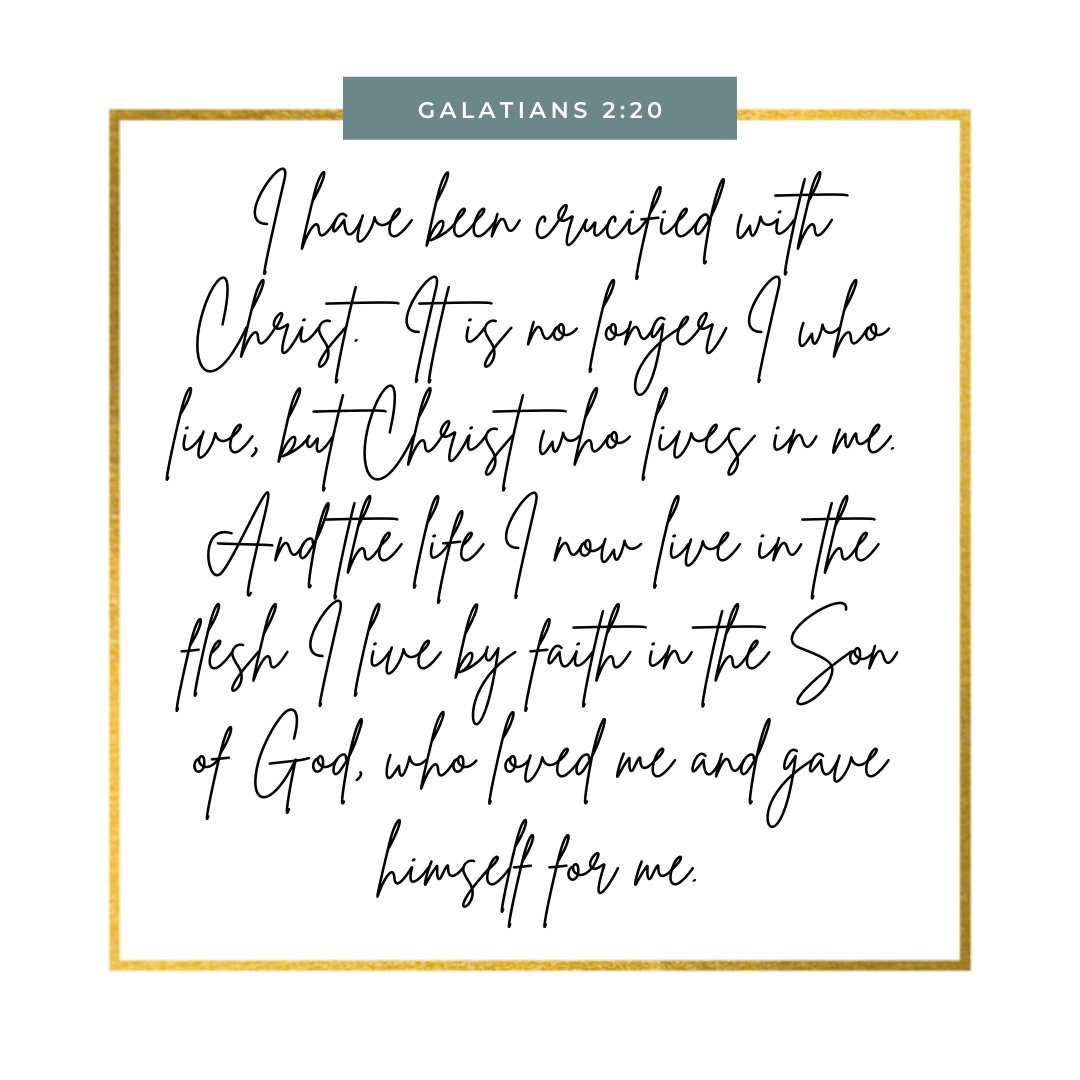 GALATIANS 2:20
I have been crucified with
Christ. It is no longer I who
live, but Christ who lives in me.
And the life I now live in the
flesh I live by faith in the Son
of God, who loved me and gave
himself for me.